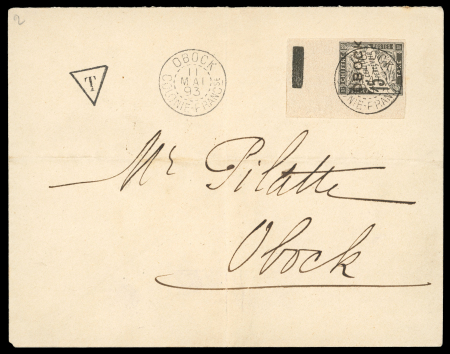 2
T
OBOCK
11
MAI
93
COLONIE-FRANCSE
OBOCK
5
Mr Pilatte
Obock